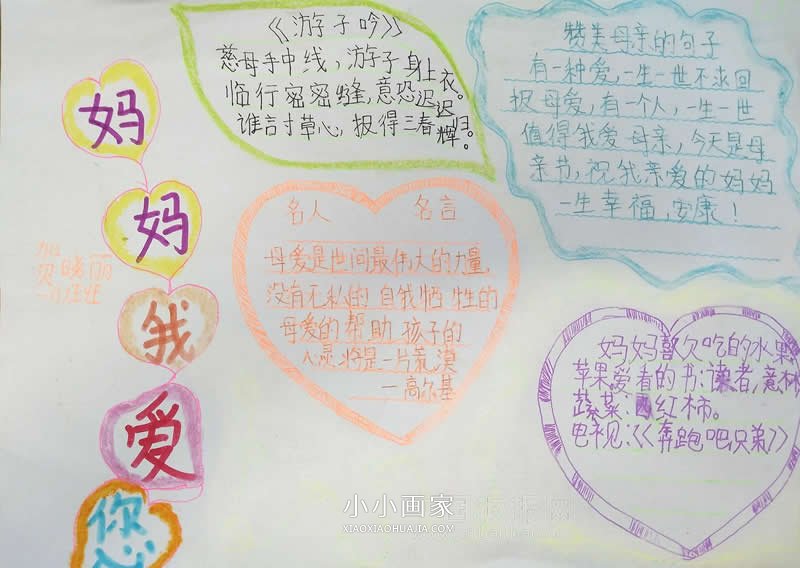 妈
妈
我
爱
你
《游子吟》
慈母手中线，游子身上衣。
临行密密缝，意恐迟迟归。
谁言寸草心，报得三春晖。
赞美母亲的句子
有一种爱，一生一世不求回
报母爱，有一个人，一生一世
值得我爱母亲，今天是母
亲节，祝我亲爱的妈妈
一生幸福，安康！
名人 名言
母爱是世间最伟大的力量，
没有无私的自我牺牲的
母爱的帮助孩子的
心灵将是一片荒漠
一高尔基
妈妈喜欠吃的水果
苹果爱看的书:读者,意林
蔬菜:西红柿。
电视:《奔跑吧兄弟》
小小画家
XIAOXIAOHUAJIA.COM